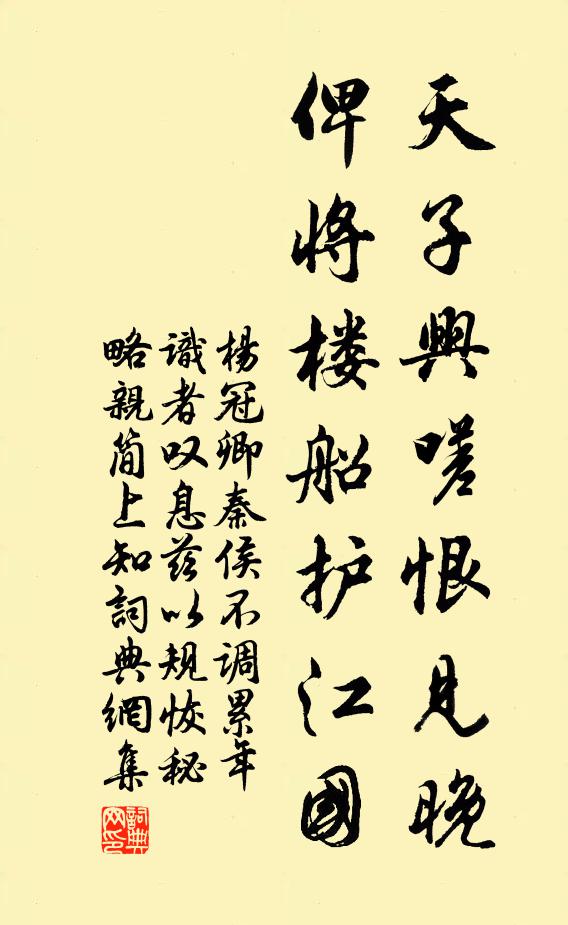 天子興嗟恨見晚
俾將楼船护江國
楊冠卿秦侯不調累年
識者叹息茲以規恢秘
略親簡上知詞典網集
詞典网印